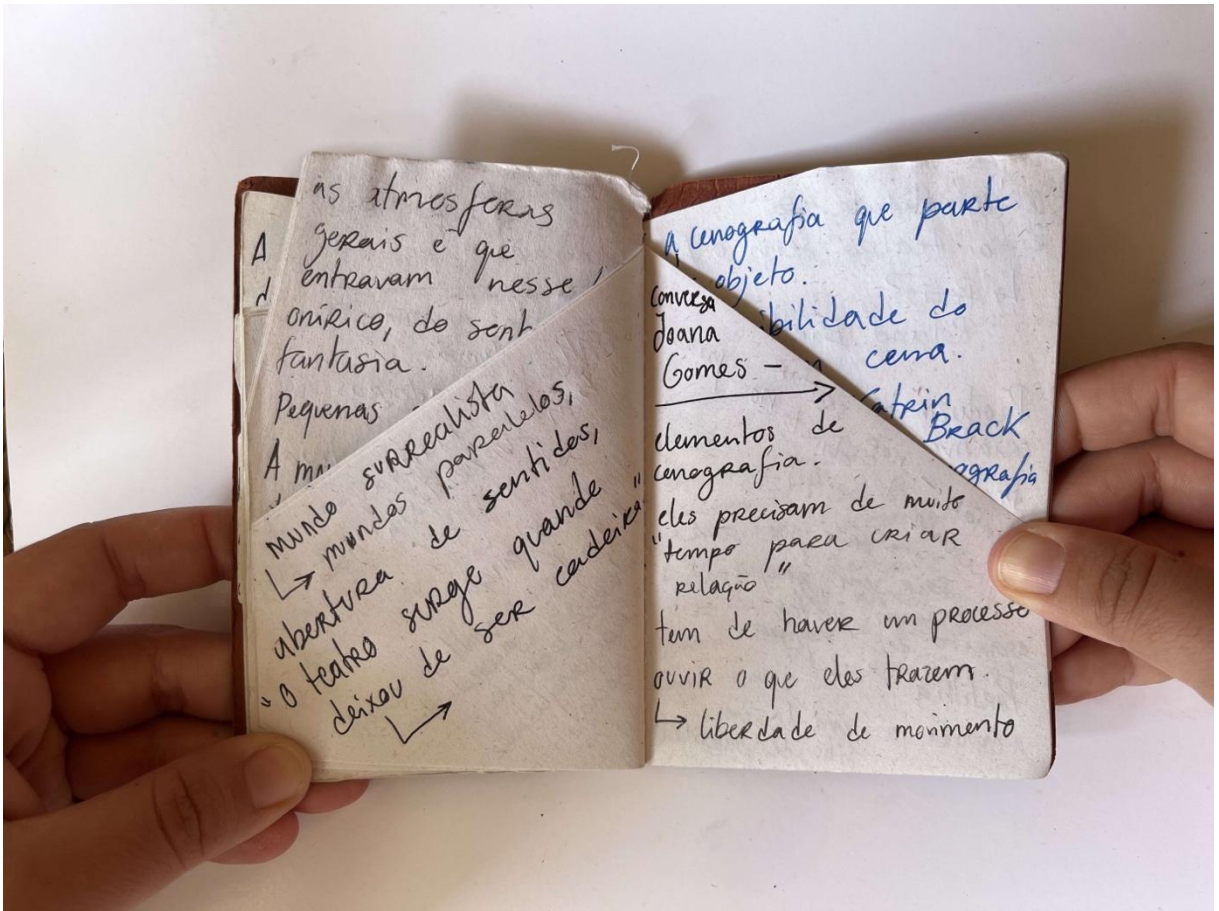 as atmosferas
gerais é que
entravam nesse
onírico, do
fantasia.
Pequenas
A
A
mundo surrealista
↳ mundos paralelos,
abertura de sentidos,
"O teatro surge quando
deixou de ser cadeira"
↳
a cenografia que parte
objeto.
do
cena.
Catrin
Brack
conversa
Joana
Gomes –
→
elementos de
cenografia.
eles precisam de muito
"tempo para criar
relação"
tem de haver um processo
ouvir o que eles trazem.
↳ liberdade de movimento